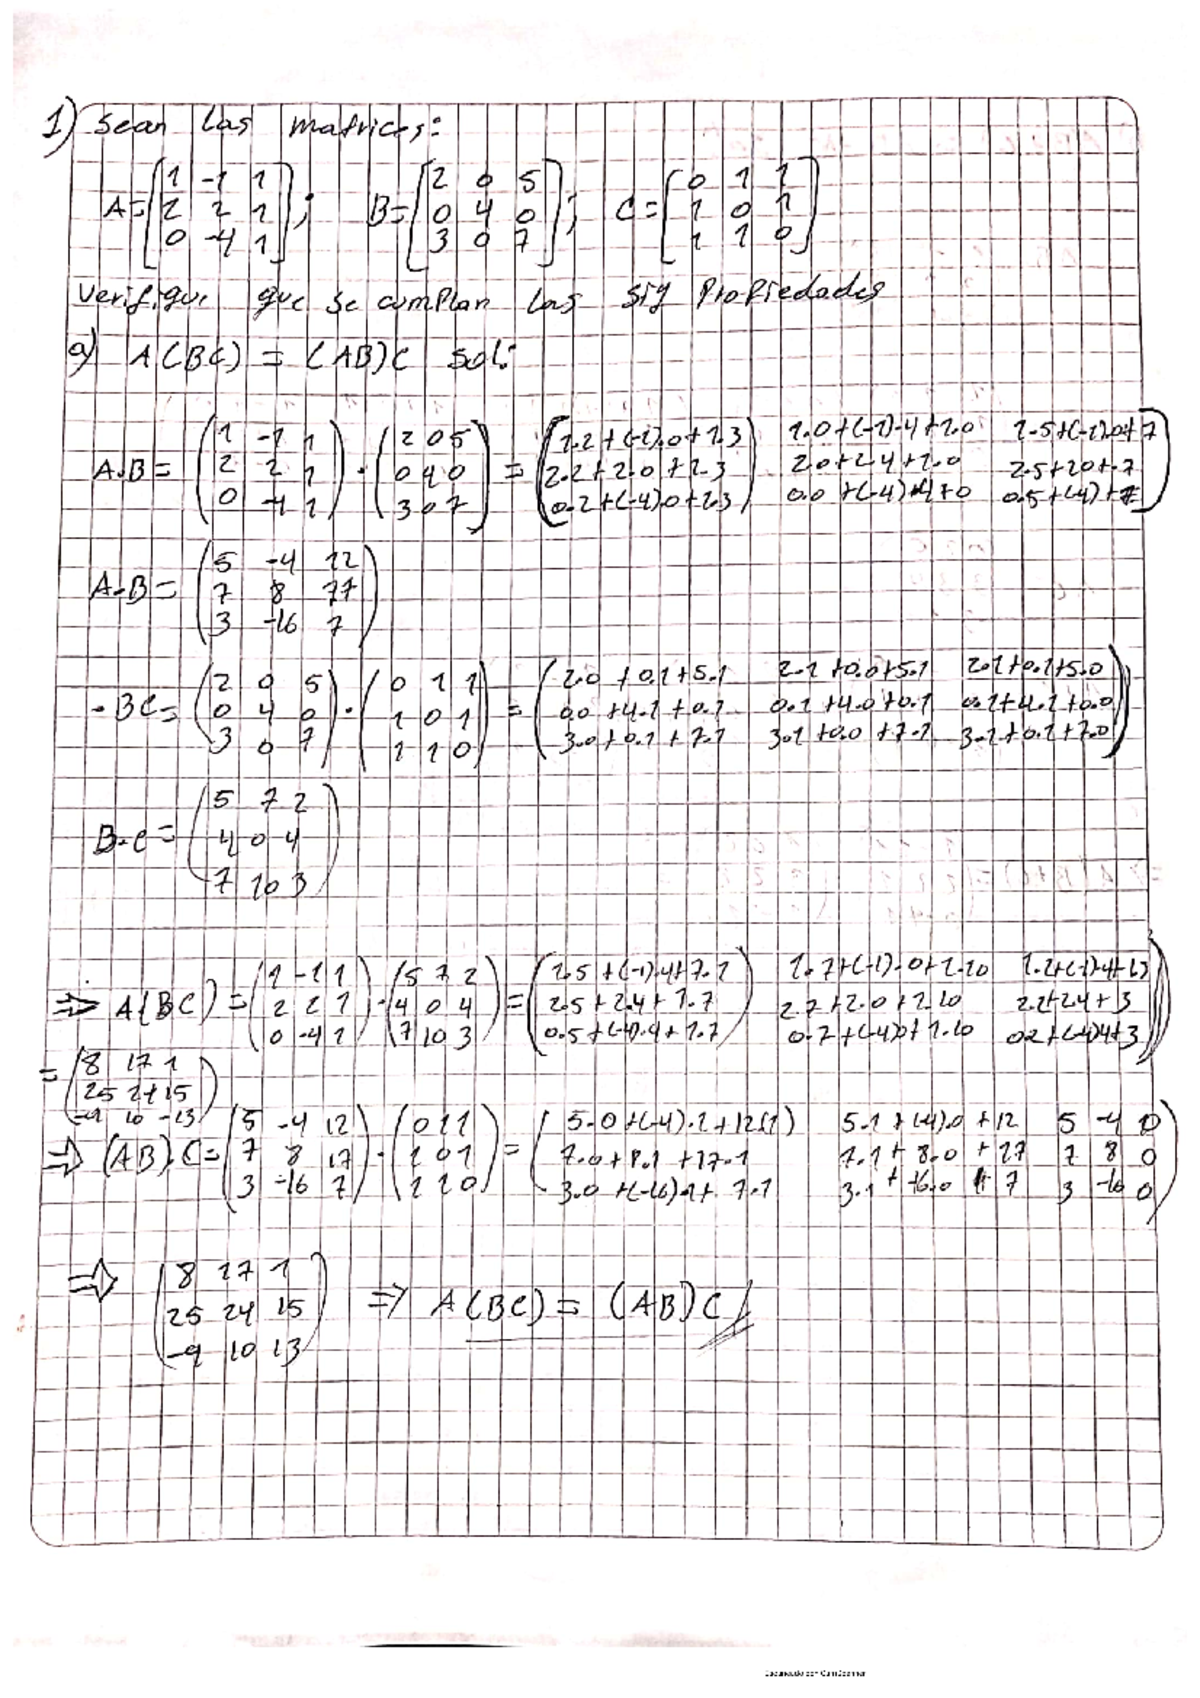 1) Sean las matrices:
A = [1 -1 1; 2 2 1; 0 -4 1]; B = [2 0 5; 0 4 0; 3 0 7]; C = [0 1 1; 1 0 1; 1 1 0]
Verifique que se cumplan las sig Propiedades
a) A(BC) = (AB)C sol:
A·B = (1 -1 1; 2 2 1; 0 -4 1) · (2 0 5; 0 4 0; 3 0 7) = (1·2+(-1)·0+1·3 1·0+(-1)·4+1·0 1·5+(-1)·0+7; 2·2+2·0+1·3 2·0+2·4+1·0 2·5+2·0+·7; 0·2+(-4)·0+1·3 0·0+(-4)·4+0 0·5+(-4)+7)
A·B = (5 -4 12; 7 8 17; 3 -16 7)
·BC = (2 0 5; 0 4 0; 3 0 7) · (0 1 1; 1 0 1; 1 1 0) = (2·0+0·1+5·1 2·1+0·0+5·1 2·1+0·1+5·0; 0·0+4·1+0·1 0·1+4·0+0·1 0·1+4·1+0·0; 3·0+0·1+7·1 3·1+0·0+7·1 3·1+0·1+7·0)
B·C = (5 7 2; 4 0 4; 7 10 3)
⇒ A(BC) = (1 -1 1; 2 2 1; 0 -4 1) · (5 7 2; 4 0 4; 7 10 3) = (1·5+(-1)·4+7·1 1·7+(-1)·0+1·10 1·2+(-1)4+1·3; 2·5+2·4+1·7 2·7+2·0+1·10 2·2+2·4+3; 0·5+(-4)·4+1·7 0·7+(-4)0+1·10 0·2+(-4)4+3)
= (8 17 1; 25 24 15; -9 10 -13)
⇒ (AB)·C = (5 -4 12; 7 8 17; 3 -16 7) · (0 1 1; 1 0 1; 1 1 0) = (5·0+(-4)·1+12(1) 5·1+(-4)·0+12 5 -4 0; 7·0+8·1+17·1 7·1+8·0+17 7 8 0; 3·0+(-16)·1+7·1 3·1+-16·0+7 3 -16 0)
⇒ (8 17 1; 25 24 15; -9 10 13) ⇒ A(BC) = (AB)C
Escaneado con CamScanner